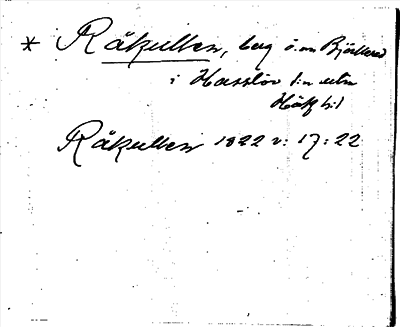 * Råkullen, berg ö. om Björkered
i Hasslöv s:n
Råkullen 1822 v: 17: 22